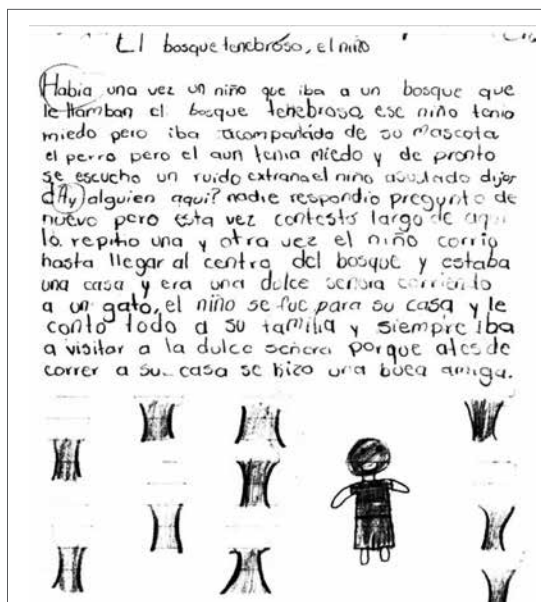 El bosque tenebroso, el niño
Había una vez un niño que iba a un bosque que
le llamban el bosque tenebroso, ese niño tenia
miedo pero iba acompañado de su mascota
el perro pero el aun tenia miedo y de pronto
se escucho un ruido extraña el niño asustado dijo:
¿Ay alguien aqui? nadie respondio pregunto de
nuevo pero esta vez contesto largo de aqui
lo repitio una y otra vez el niño corrio
hasta llegar al centro del bosque y estaba
una casa y era una dulce señora corriendo
a un gato, el niño se fue para su casa y le
conto todo a su familia y siempre iba
a visitar a la dulce señora porque ates de
correr a su casa se hizo una buea amiga.